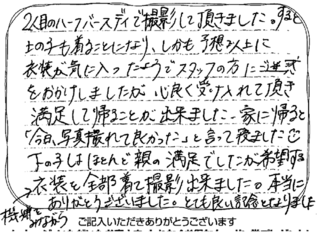 2人目のハーフバースデイで撮影して頂きました。すると
上の子も着ることになり、しかも予想以上に
衣装が気に入ったようでスタッフの方に迷惑
をおかけしましたが、心良く受け入れて頂き
満足して帰ることが出来ました。家に帰ると
「今日、写真撮れて良かった」と言って寝ました
下の子はほとんど親の満足でしたが希望する
衣装を全部着て撮影出来ました。本当に
機嫌をみながら ありがとうございました。とても良い記念となりました
ご記入いただきありがとうございます